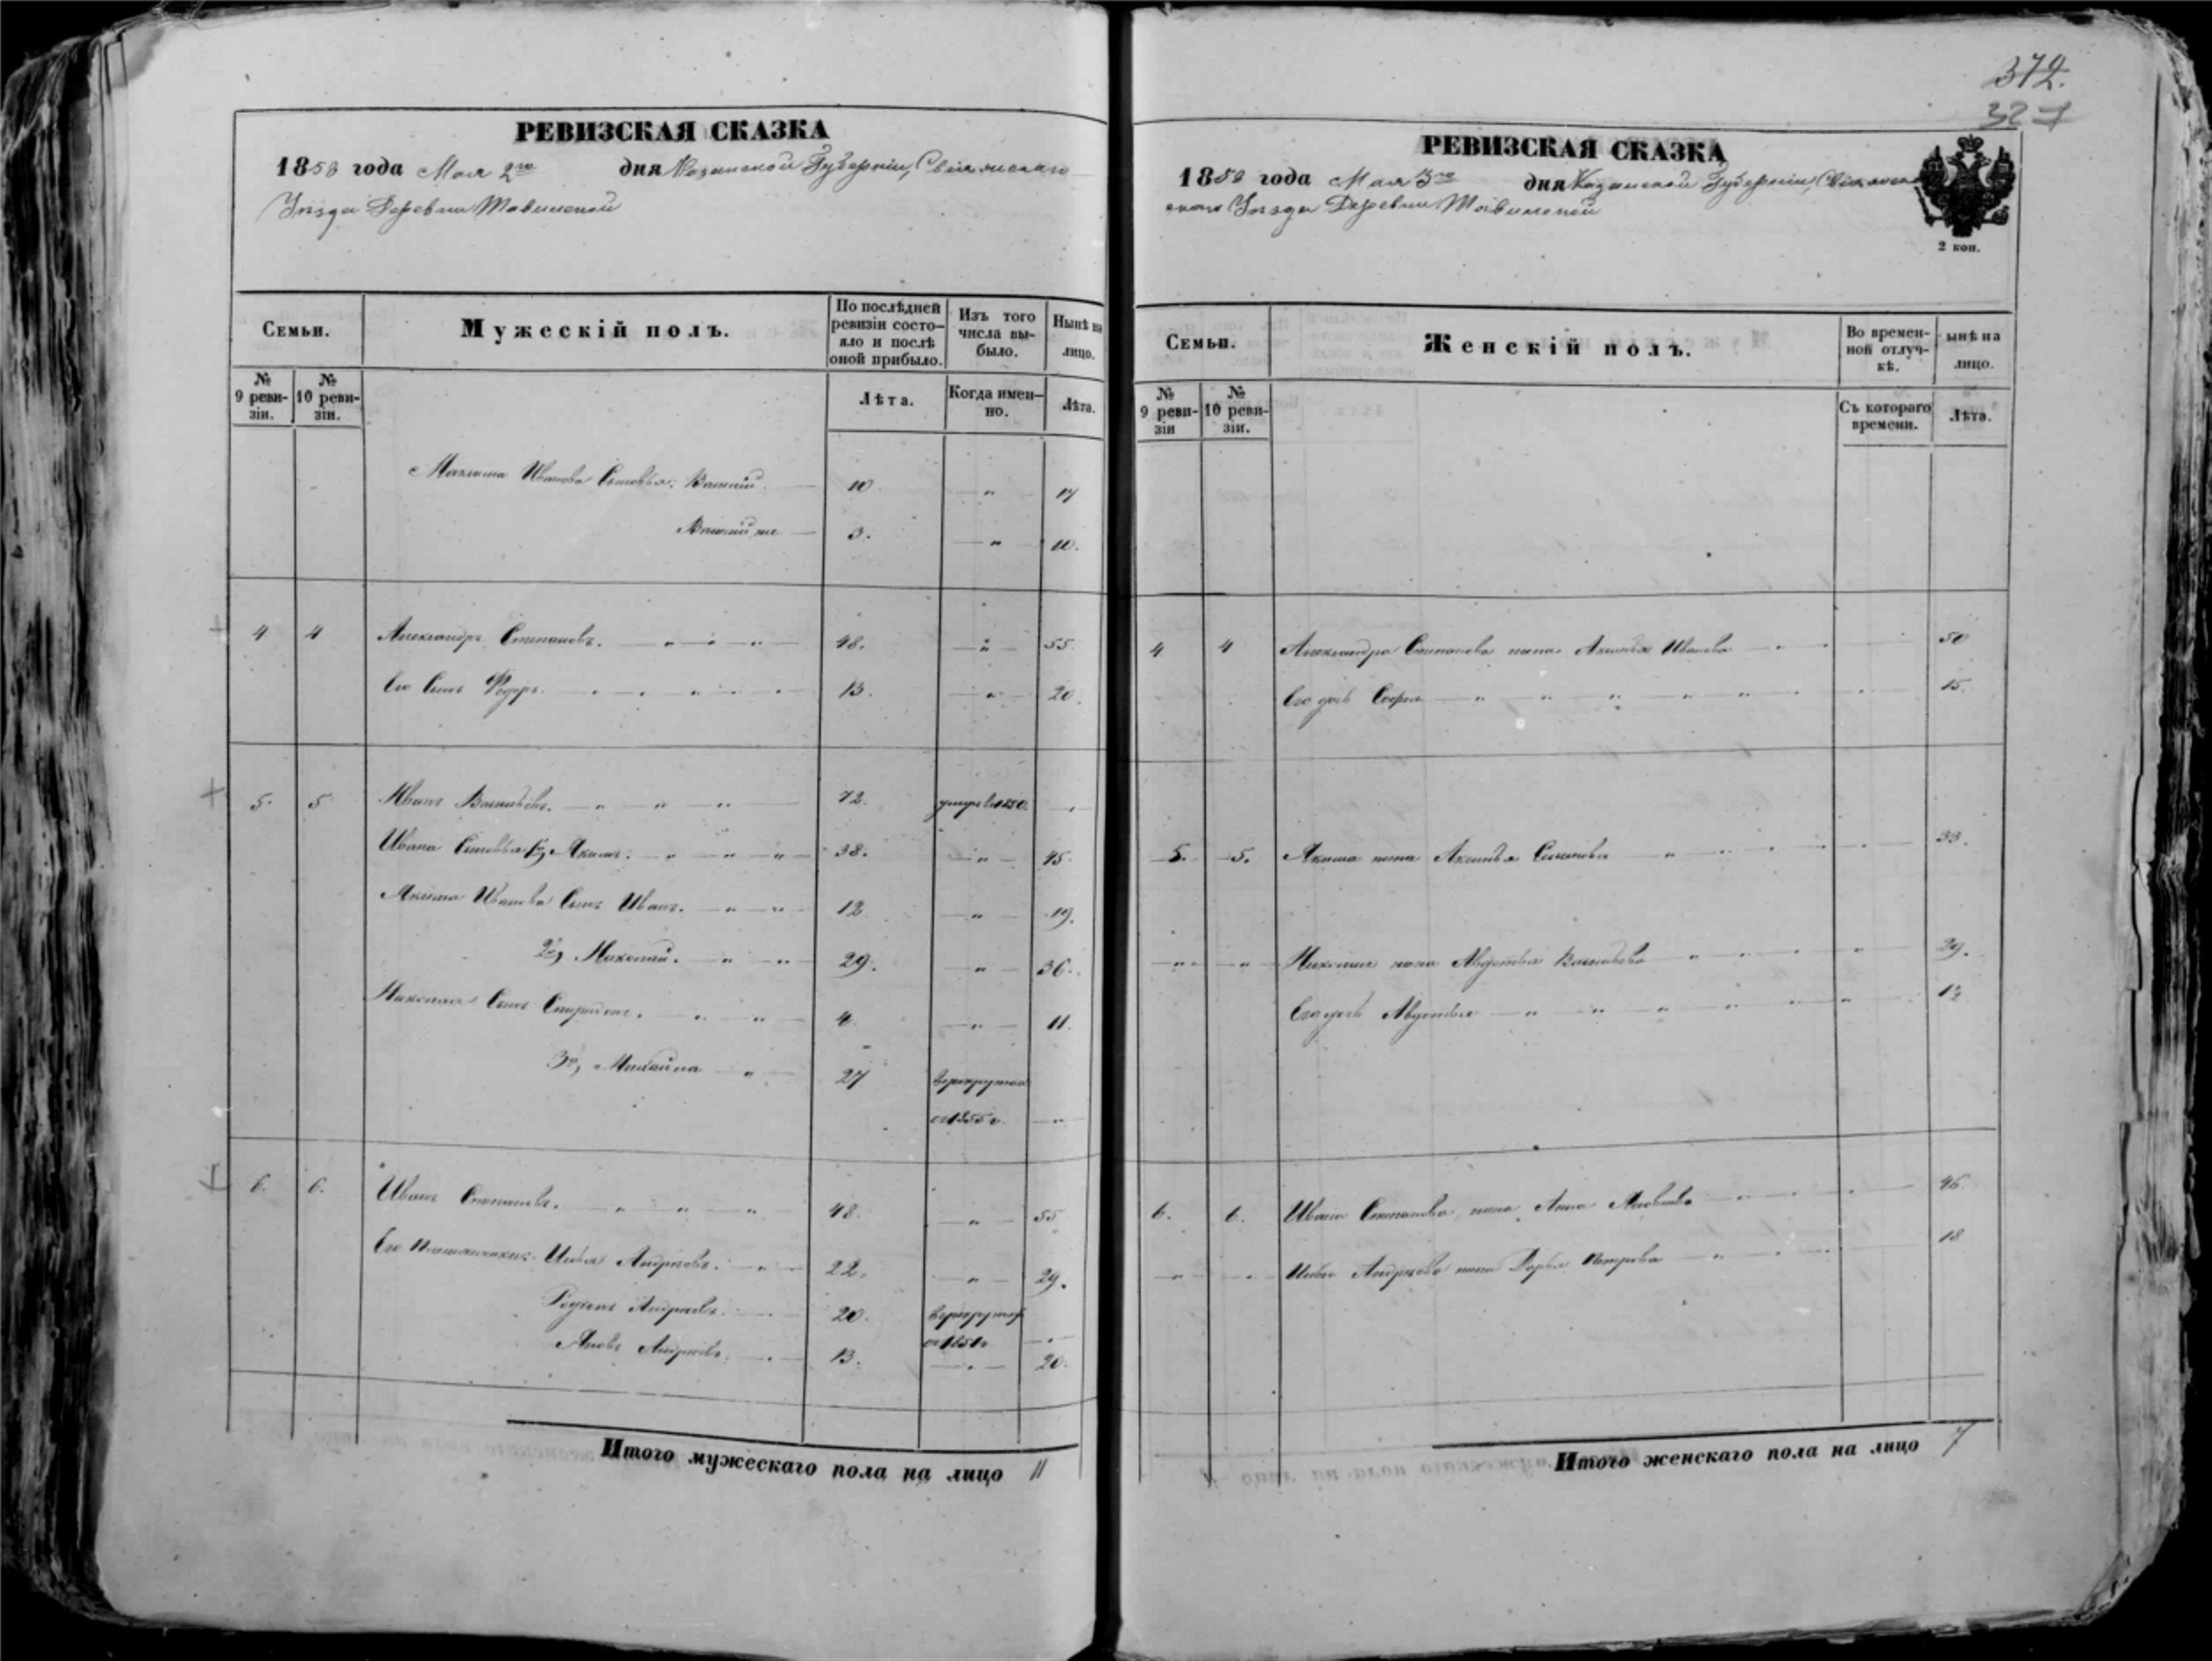 372.
327
РЕВИЗСКАЯ СКАЗКА
1858 года Мая 2го дня Казанской Губерніи, Свіяжскаго
Уѣзда Деревни
Семьи.
Мужескій полъ.
По послѣдней ревизіи состо-
яло и послѣ
оной прибыло.
Изъ того
числа вы-
было.
Нынѣ на
лицо.
№
9 реви-
зіи.
№
10 реви-
зіи.
Лѣта.
Когда имен-
но.
Лѣта.
Иванова Сыновья: Василій 10 " 17
Василій же 3. " 10.
4 4 Александръ Степановъ. 48. " 55.
Его Сынъ Федоръ. 13. " 20.
5. 5 Иванъ Васильевъ. 72. умеръ 1850.
Ивана Сыновья 1й, Акимъ. 38. " 45.
Акима Иванова Сынъ Иванъ. 12 " 19.
2й, Николай. 29. " 36.
Николая Сынъ Спиридонъ. 4. " 11.
3й, Михайла 27 в рекруты
въ 1855 г.
6. 6. Иванъ Степановъ. 48. " 55
Его Племянники: Илья Андреевъ. 22. " 29.
Родіонъ Андреевъ. 20. в рекруты
Яковъ Андреевъ. 13. " 20.
Итого мужескаго пола на лицо 11
РЕВИЗСКАЯ СКАЗКА
1858 года Мая 3го дня Казанской Губерніи Свіяж
скаго Уѣзда Деревни
2 коп.
Семьи.
Женскій полъ.
Во времен-
ной отлуч-
кѣ.
ынѣ на
лицо.
№
9 реви-
зіи
№
10 реви-
зіи.
Съ котораго
времени.
Лѣта.
4 4 Александра Степанова жена Аксинья Иванова 50
Его дочь Софья 15.
5. 5. Акима жена Аксинья 33.
Николая жена Авдотья Васильева 29.
Его дочь Авдотья
6. 6. Ивана Степанова жена Анна Яковлева 46
Ильи Андреева жена Дарья Петрова 18
Итого женскаго пола на лицо 7